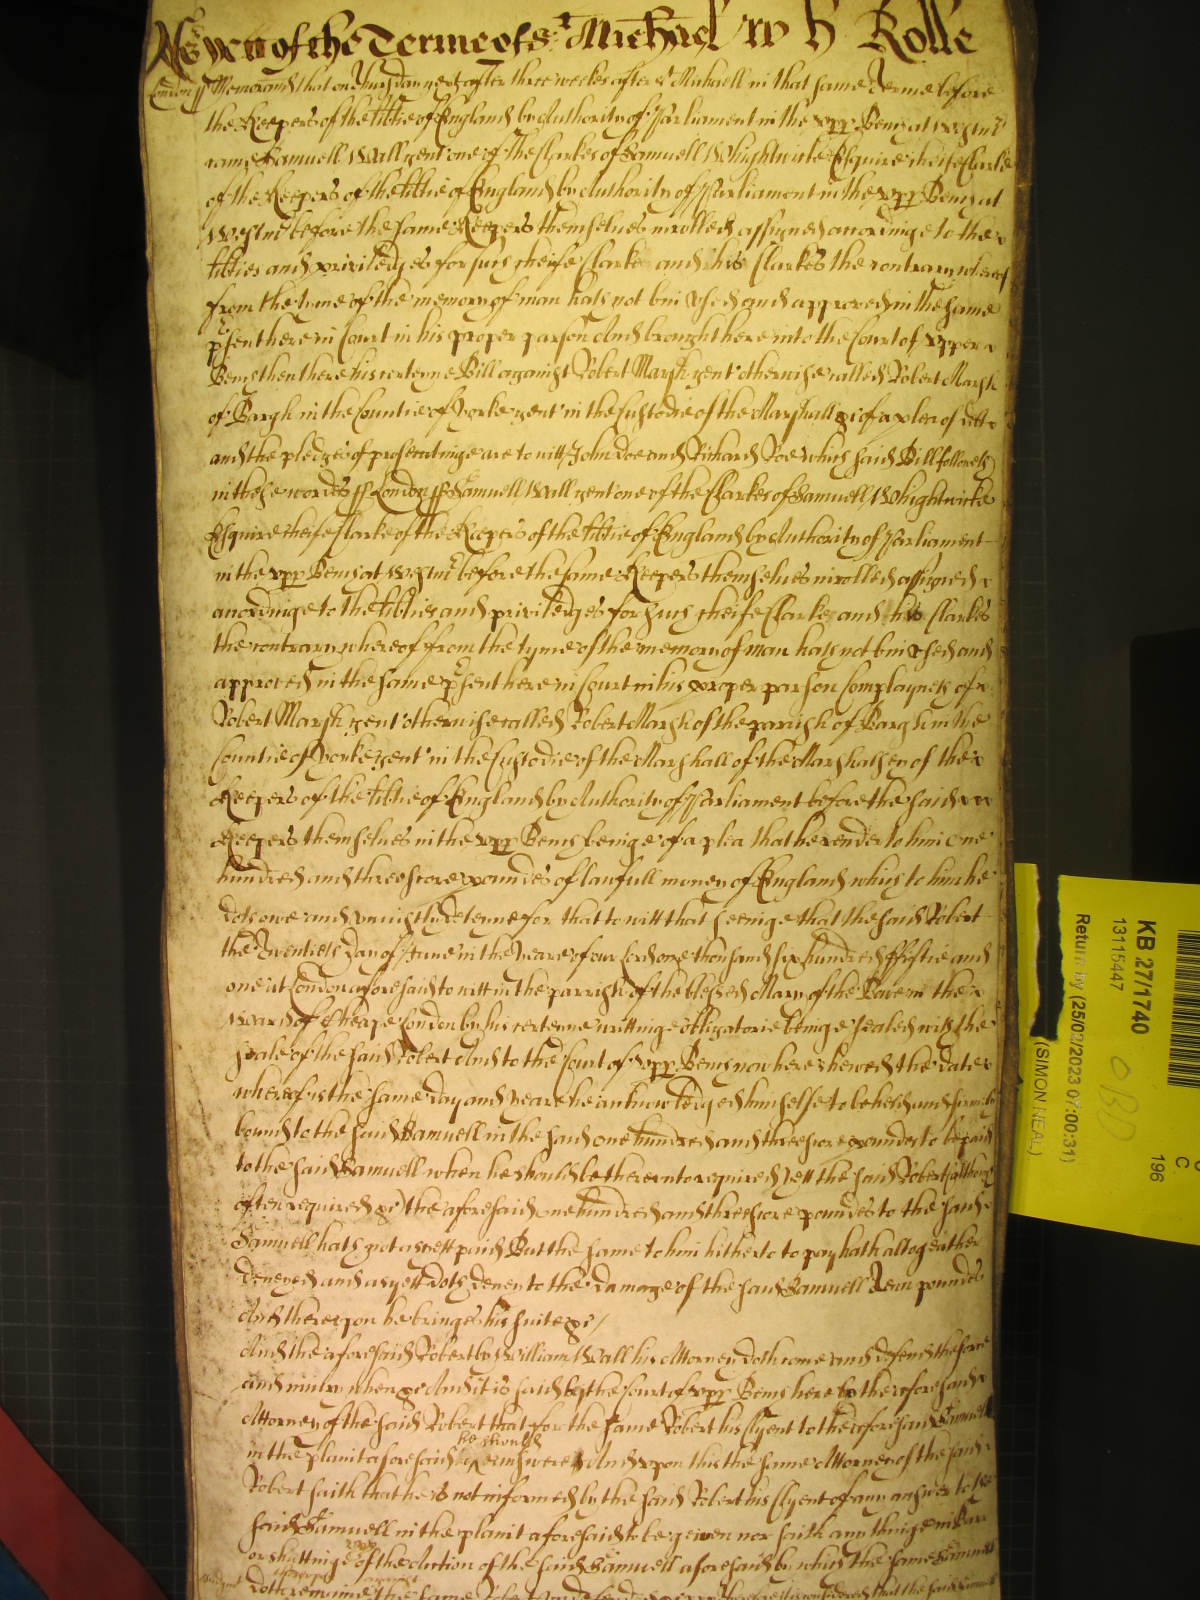 As yett of the Terme of St Michael Rolle
London ss Memorand that on Thursday next after three weekes after St Michaell in that same Terme before
the Keepers of the libtie of England by Authority of Parliament in the upp Bench at Westmr
came Samuell Wall gent one of the Clarkes of Samuell Whightwicke Esquire cheife Clarke
of the Keepers of the libtie of England by Authority of Parliament in the upp Bench at
Westmr before the same Keepers themselves inrolled assigned accordinge to the
libties and priviledges for such cheife Clarke and his Clarkes the contrary whereof
from the tyme of the memory of man hath not bin used and approved in the same
psent here in Court in his proper parson And brought here into the Court of upper
Bench then there his certeyne Bill against Robert Marsh gent otherwise called Robert Marsh
of Bargh in the Countie of Yorke gent in the Custodie of the Marshall &c of a plea of debt
and the pledges of prosecutinge are to witt John Doe and Richard Roe which said Bill followeth
in these wordes ss London ss Samuell Wall gent one of the Clarkes of Samuell Whightwicke
Esquire cheife Clarke of the Keepers of the libtie of England by Authority of Parliament
in the upp Bench at Westmr before the same Keepers themselves inrolled assigned
accordinge to the libties and priviledges for such cheife Clarke and his Clarkes
the contrary whereof from the tyme of the memory of man hath not bin used and
approved in the same psent here in Court in his proper parson Complayneth of
Robert Marsh gent otherwise called Robert Marsh of the parrish of Bargh in the
Countie of Yorke gent in the Custodie of the Marshall of the Marshalsey of the
Keepers of the libtie of England by Authority of Parliament before the said
Keepers themselves in the upp Bench beinge of a plea that he render to him one
hundred and threescore poundes of lawfull money of England which to him he
doth owe and uniustly deteyne for that to witt that seeinge that the said Robert
the Twentieth day of June in the yeare of our Lord one thousand six hundred Fiftie and
one at London aforesaid to witt in the parrish of the blessed Mary of the Bowe in the
Ward of Cheape London by his certeyne writtinge obligatorie beinge sealed with the
seale of the said Robert And to the Court of upp Bench now here shewed the date
whereof is the same day and yeare he acknowledged himselfe to be held and firmely
bound to the said Samuell in the said one hundred and threescore poundes to be paid
to the said Samuell when he should be thereunto required yett the said Robert (although
often required &c) the aforesaid one hundred and threescore poundes to the said
Samuell hath not as yett paid But the same to him hitherto to pay hath altogeather
denyed and as yett doth deney to the damage of the said Samuell Tenn poundes
And thereupon he bringes his suite &c /
And the aforesaid Robert by William Wall his Attorney doth come and defend the force
and iniury when &c And it is said by the Court of upp Bench here to the aforesaid
Attorney of the said Robert that for the same Robert his Clyent to the aforesaid Samuell
in the plaint aforesaid he should answere And upon this the same Attorney of the said
Robert saith that he is not informed by the said Robert his Clyent of any answer to the
said Samuell in the plaint aforesaid to be given nor saith any thinge in Barr
or shuttinge upp of the Action of the said Samuell aforesaid by which the same Samuell
doth remaine the same Robert that the said Samuell
KB 27/1740
13115447
Return by (25/02/2023 07:00:31)
(SIMON NEAL)
C
196